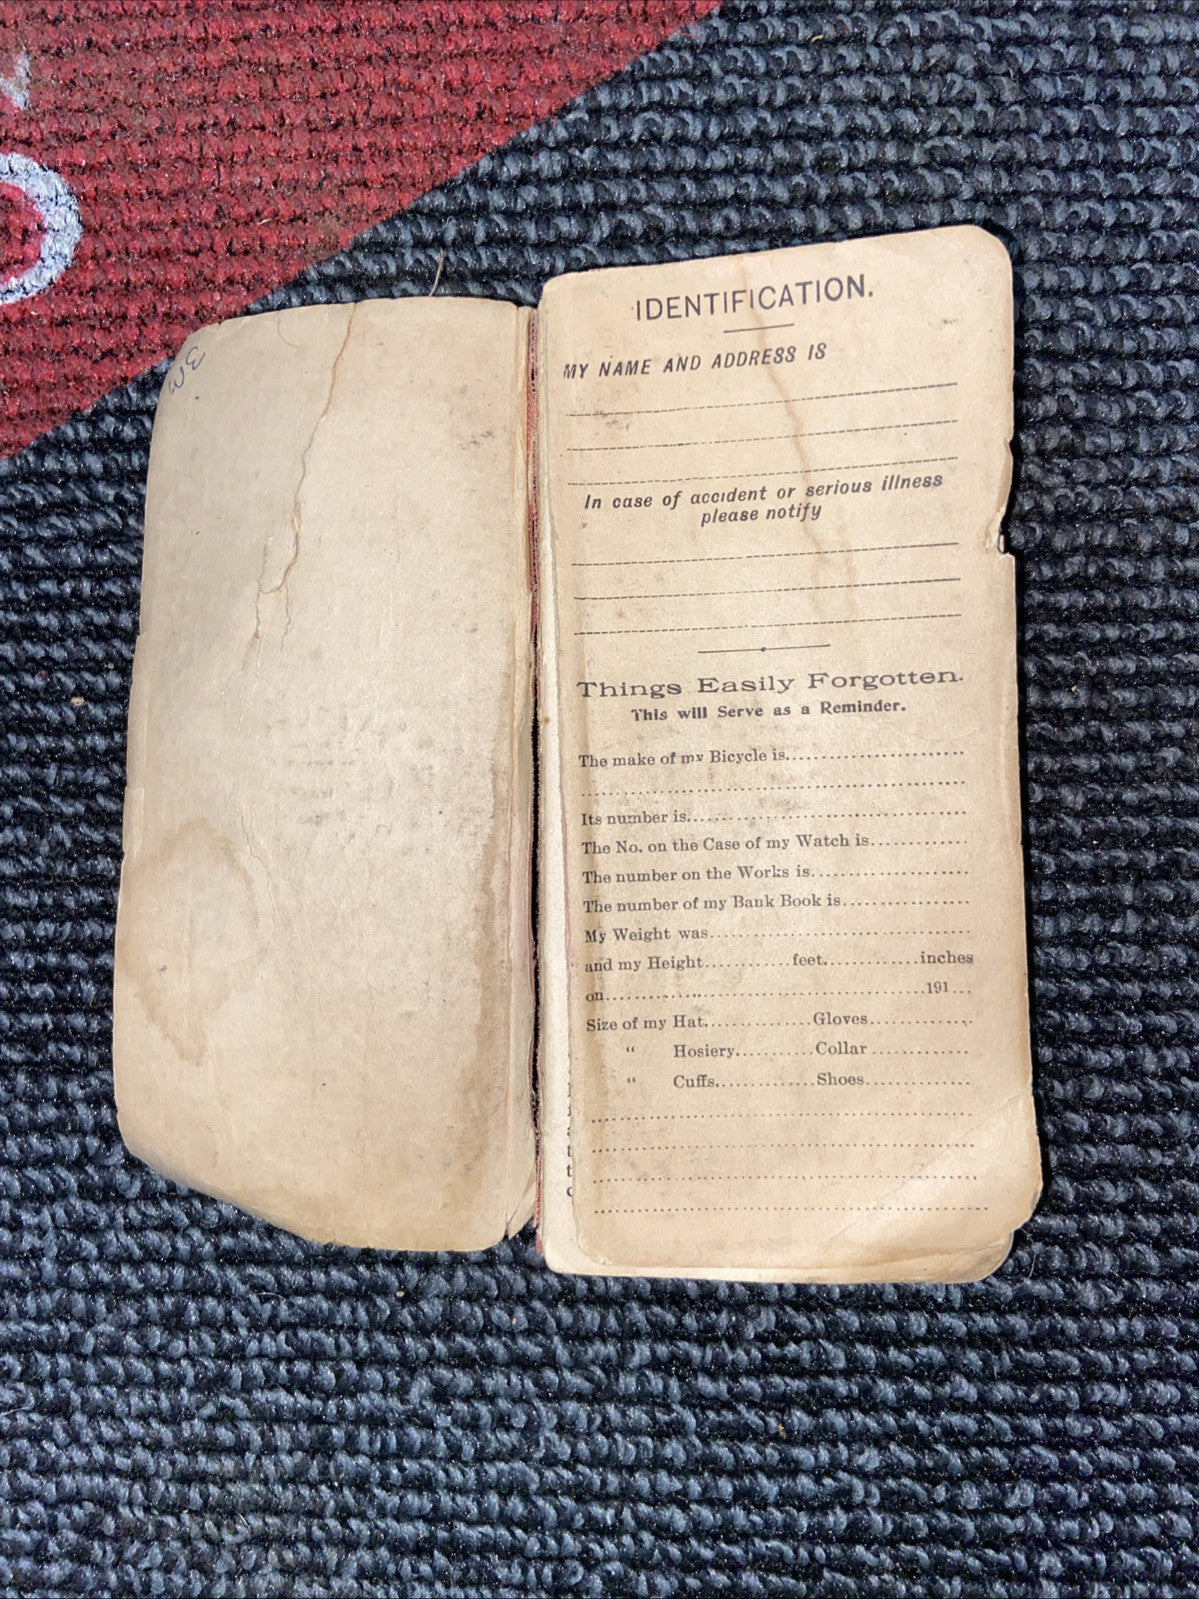 IDENTIFICATION.
MY NAME AND ADDRESS IS
In case of accident or serious illness
please notify
Things Easily Forgotten.
This will Serve as a Reminder.
The make of my Bicycle is
Its number is
The No. on the Case of my Watch is
The number on the Works is
The number of my Bank Book is
My Weight was
and my Height............feet.............inches
on............191...
Size of my Hat.............Gloves
" Hosiery...........Collar
" Cuffs.............Shoes